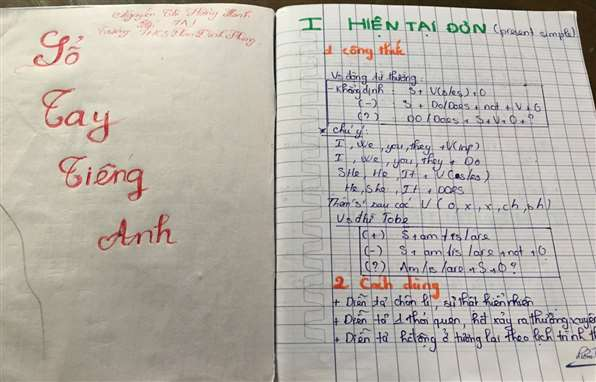 Nguyễn Thị Hồng Hạnh
7A1
Trường THCS Phan Đình Phùng
Sổ
Tay
Tiếng
Anh
I HIỆN TẠI ĐƠN (present simple)
1 công thức
V: động từ thường
- Khẳng định : S + V(s/es) + O
(-) : S + Do/Does + not + V + O
(?) : DO/Does + S + V + O + ?
* chú ý:
I, We, you, they + V(inf)
I, We, you, they + Do
SHe, He, It + V(s/es)
He, She, It + Does
Thêm 's' sau các V (o, x, s, ch, sh)
V: động từ Tobe
(+) S + am/is/are
(-) S + am/is/are + not + O
(?) Am/is/are + S + O ?
2 Cách dùng
+ Diễn tả chân lí, sự thật hiển nhiên
+ Diễn tả 1 thói quen, hđ xảy ra thường xuyên
+ Diễn tả hđộng ở tương lai theo lịch trình